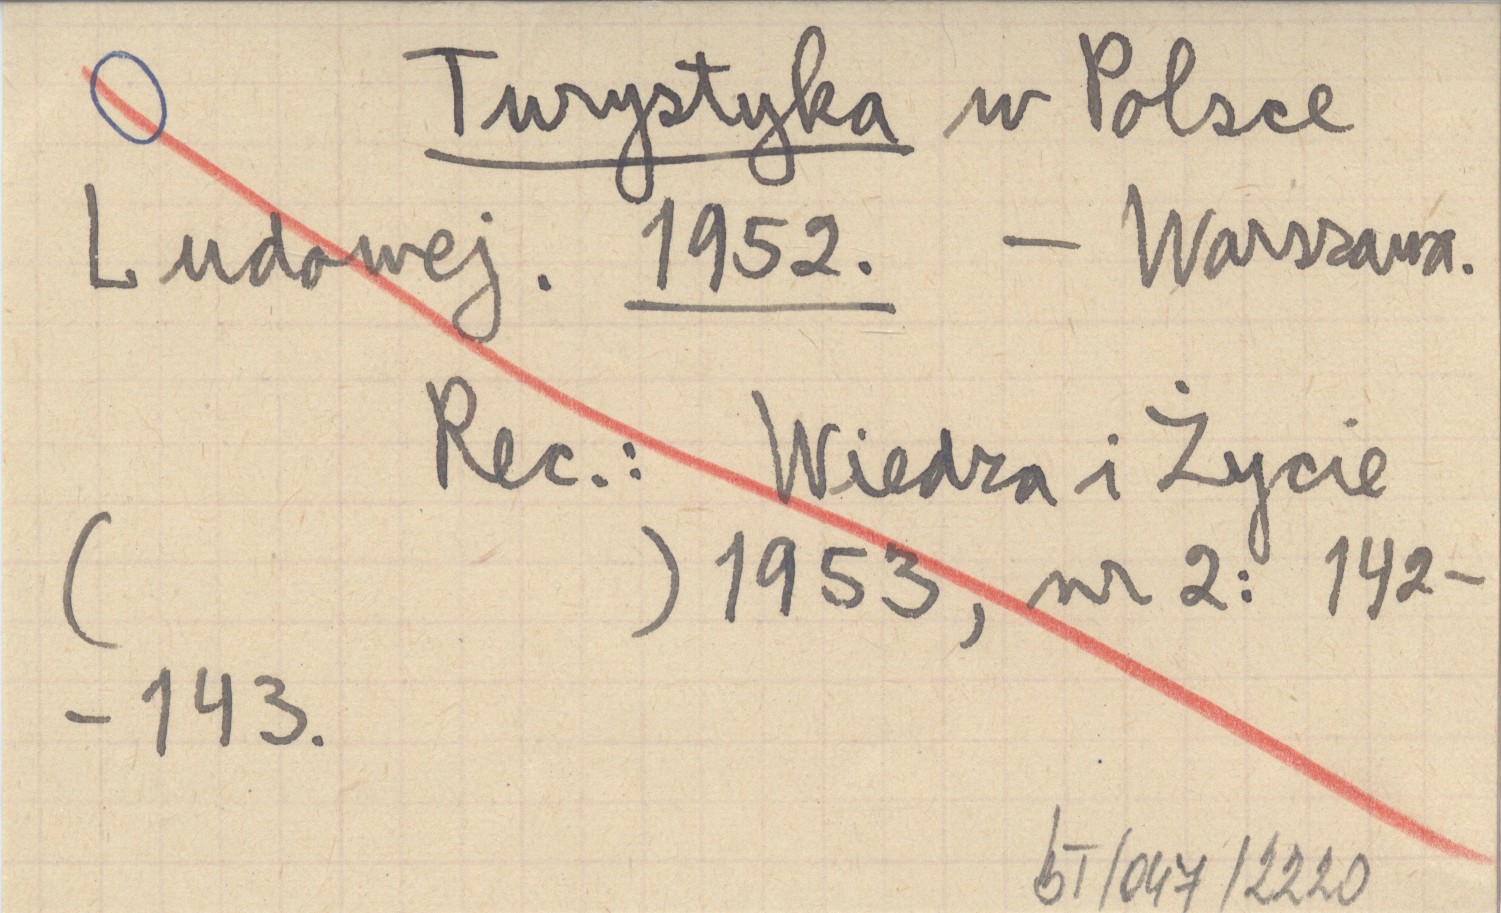 Turystyka w Polsce
Ludowej. 1952. – Warszawa.
Rec.: Wiedza i Życie
( ) 1953, nr 2: 142-
-143.
bT/047/2220